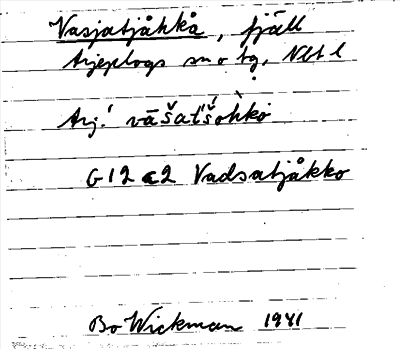 Vasjatjåhkå, fjäll
Arjeplogs sn o tg, Nbt l
Arj. vāšatˈšohkò
G 12 c2 Vadsatjåkko
Bo Wickman 1941